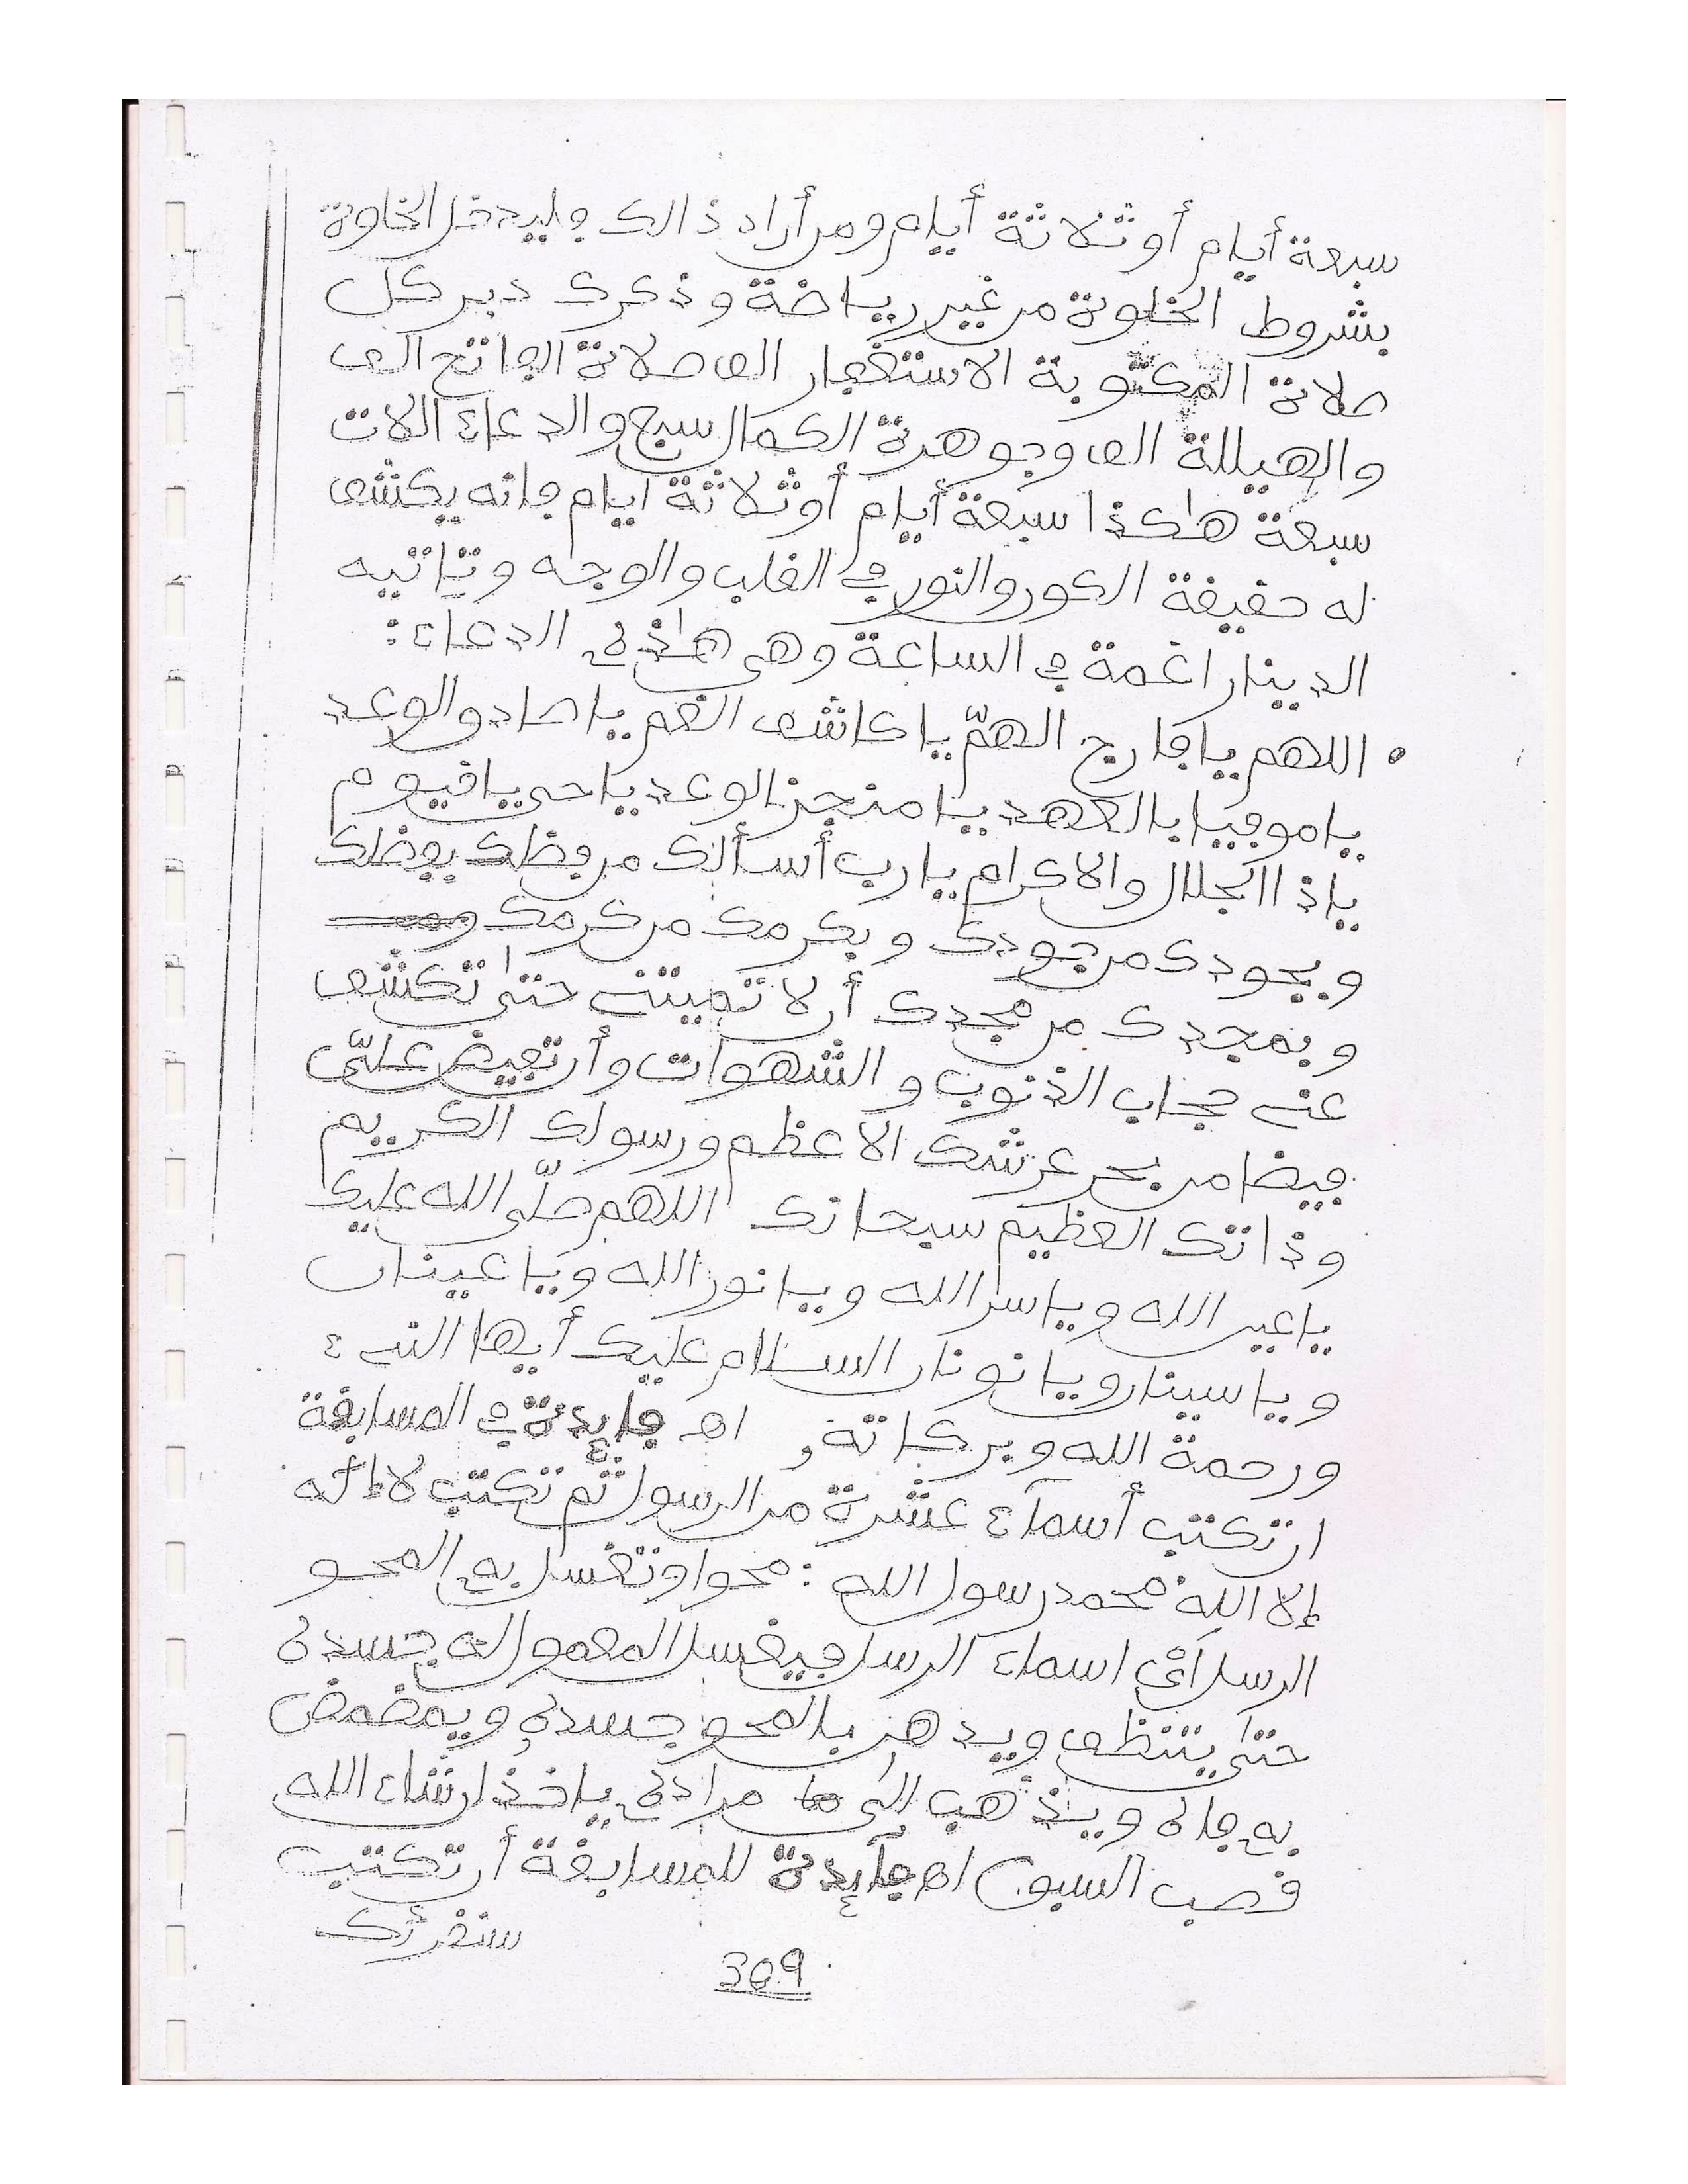 سبعة أيام أو ثلاثة أيام ومن أراد ذالك فليدخل الخلوة
بشروط الخلوة من غير رياضة وذكرك دبر كل
صلاة المكتوبة الاستغفار الف صلاة الفاتح الف
والهيللة الف وجوهرة الكمال سبع والدعاء الات
سبعة هاكذا سبعة أيام أو ثلاثة ايام فانه يكشف
له حقيقة الكون والنور في القلب والوجه وتاتيه
الدينار اغمة في الساعة وهي هاذه الدعاء :
• اللهم يا فارج الهمّ يا كاشف الغم يا صادو الوعد
يا موفيا بالعهد يا منجز الوعد يا حي يا قيوم
ياذا الجلال والاكرام يا رب أسألك من فظلك بفظلك
وبجودك من جودك وبكرمك من كرمك
وبمجدك من مجدك أن لا تميتني حتى تكشف
عني حجاب الذنوب والشهوات وأن تفيض علىّ
فيضا من بحر عرشك الاعظم ورسولك الكريم
وذاتك العظيم سبحانك اللهم صلّى الله عليك
يا عين الله ويا سر الله ويا نور الله ويا عينان
ويا سينان ويا نونان السلام عليك أيها النبيء
ورحمة الله وبركاته اهـ فايدة في المسابقة
ان تكتب أسمآء عشرة من الرسول ثم تكتب لا إله
إلا الله محمد رسول الله : محوا وتغسل به المحو
الرسل أي اسماء الرسل فيغسل المعمول له جسده
حتى يتنظف ويذهن بالمحو جسده ويمضمض
به فاه ويذهب إلى مراده ياخذ ان شاء الله
قصب السبون اهـ فآيدة للمسابقة أن تكتب
سنقرئك
309